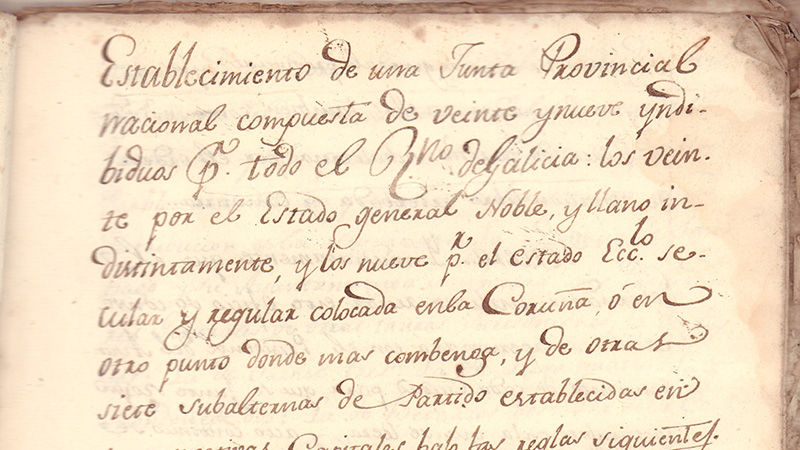 Establecimiento de una Junta Provincial
nacional compuesta de veinte ynueve yndi-
biduos p.r todo el R.no de Galicia: los vein-
te por el Estado general Noble, y llano in-
distintamente, y los nueve p.r el estado Ecc.lo se-
cular y regular colocada en la Coruña, ó en
otro punto donde mas combenga, y de otras
siete subalternas de Partido establecidas en
Capitales bajo las reglas siguientes.